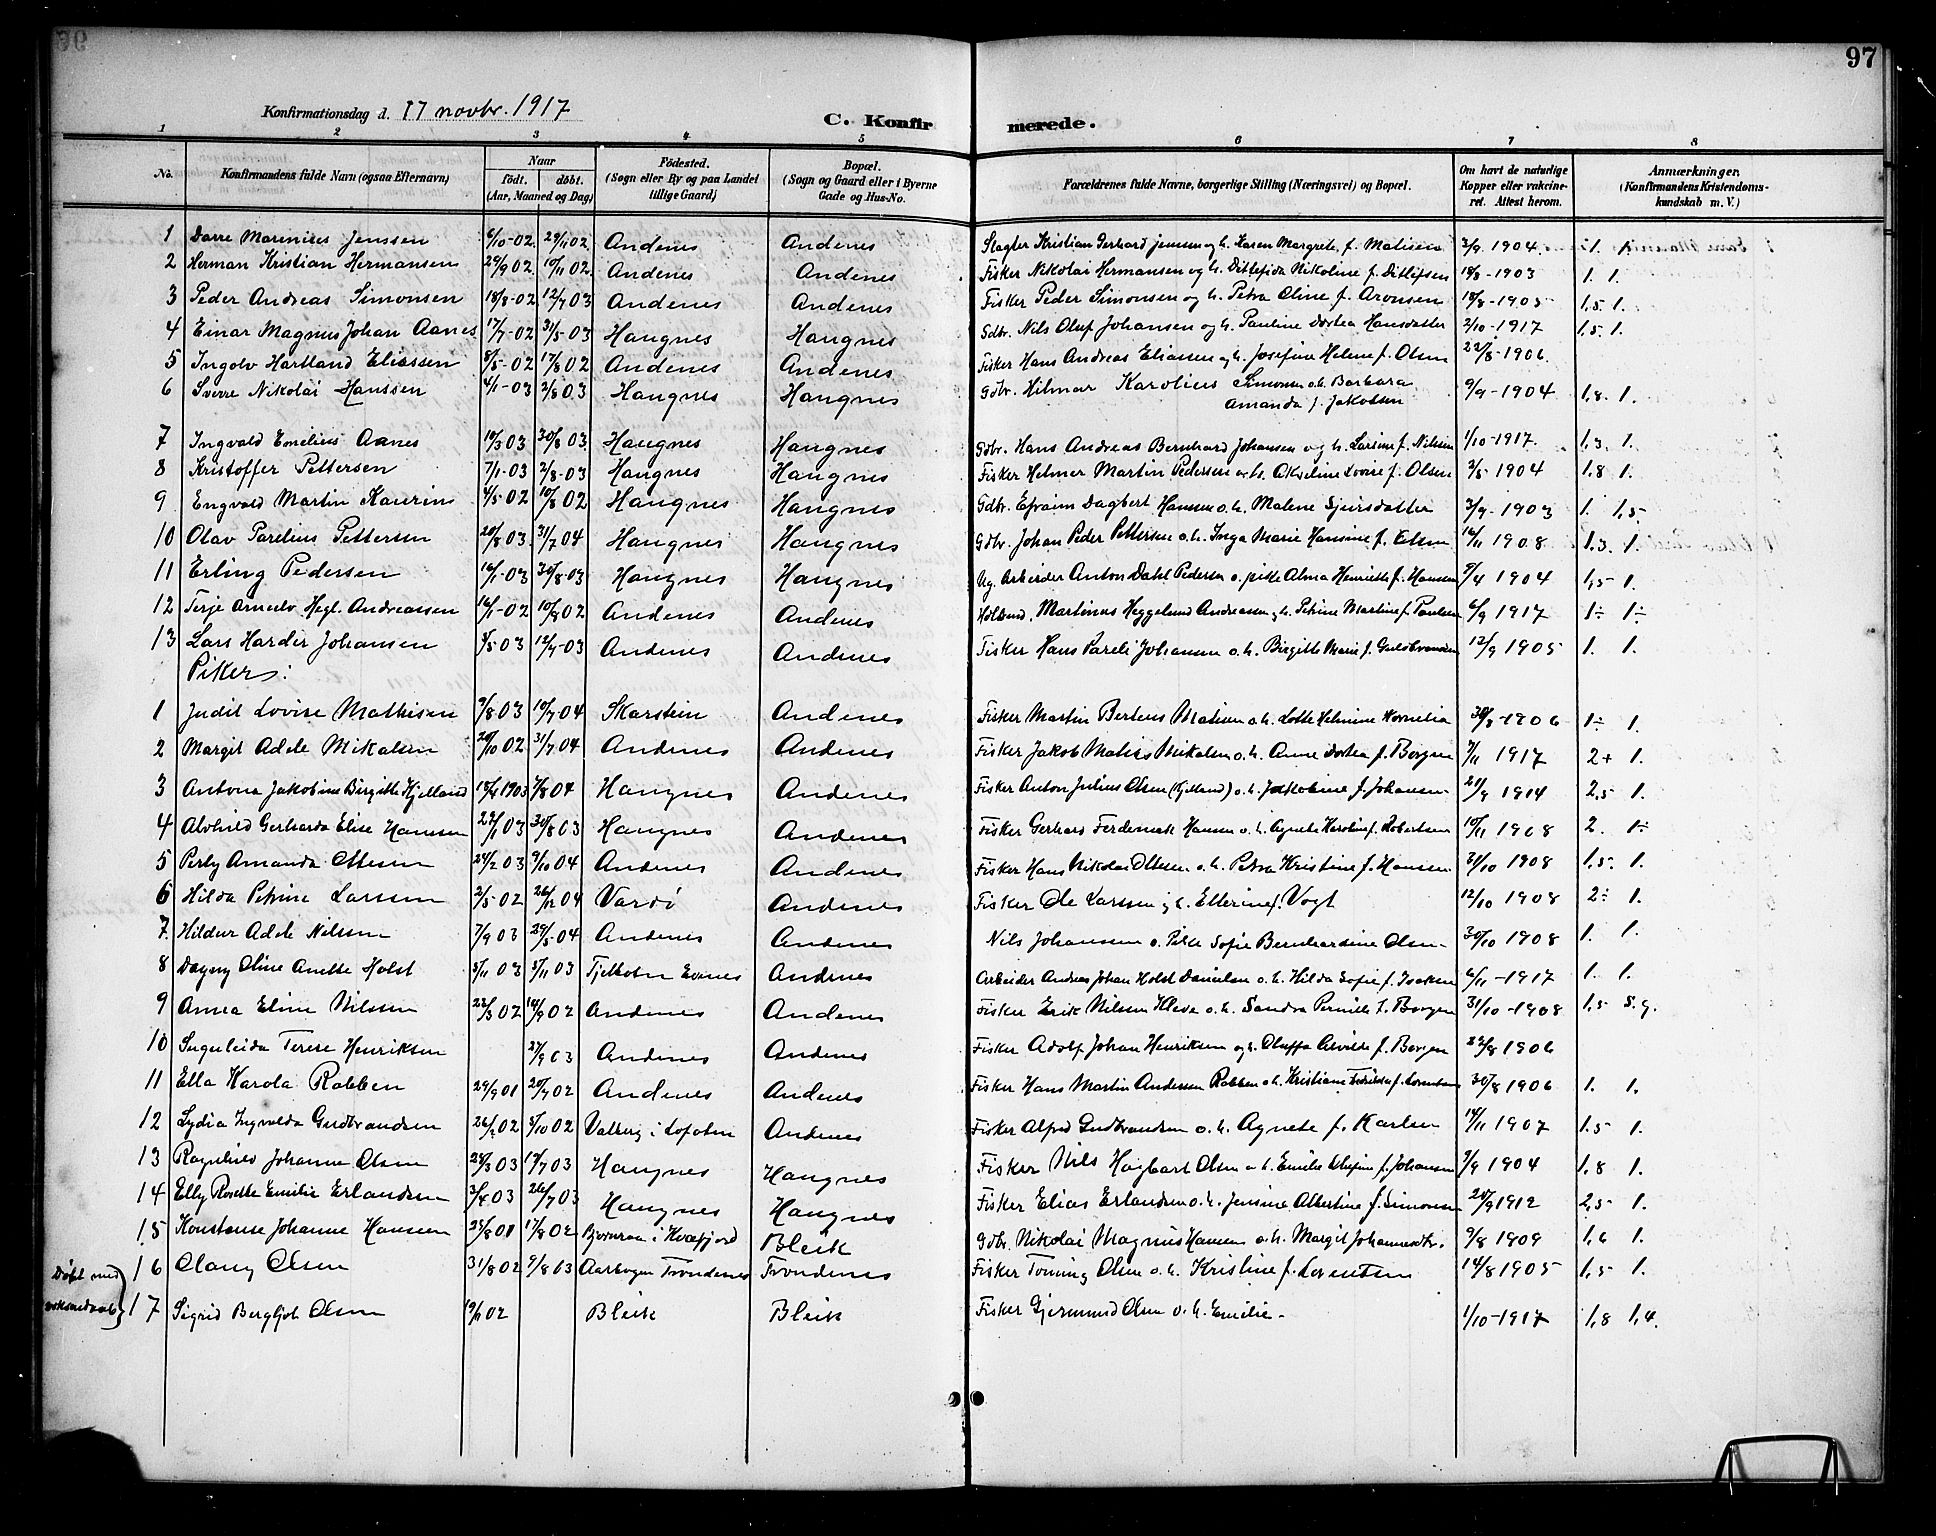 97
Konfirmationsdag d. 17 novbr. 1917
C. Konfirmerede.
1 2 3 4 5 6 7 8
No. Konfirmandens fulde Navn (ogsaa Efternavn) Naar födt. döbt. (Aar, Maaned og Dag) Födested. (Sogn eller By og paa Landet tillige Gaard) Bopæl. (Sogn og Gaard eller i Byerne Gade og Hus-No. Forældrenes fulde Navne, borgerlige Stilling (Næringsvei) og Bopæl. Om havt de naturlige Kopper eller vakcineret. Attest herom. Anmærkninger. (Konfirmandens Kristendomskundskab m. V.)
1 Marenius Jenssen 6/10-02. 29/11 02. Andenes Andenes Slagter Kristian Gerhard Jensen og h. Karen Margrete f. Matisen 3/9 1904. 1. 1.
2 Herman Kristian Hermansen 29/9 02. 10/11 02. Andenes Andenes Fisker Nikolai Hermansen og h. Ditlefida Nikoline f. Ditlefsen 18/8-1903 1. 1.
3 Peder Andreas Simonsen 18/8-02 12/7 03 Andenes Andenes Fisker Peder Simonsen og h. Petra Oline f. Aronsen 18/8-1905 1,5 1.
4 Einar Magnus Johan Aanes 17/7-02 31/5-03 Haugnes Haugnes Gdbr. Nils Oluf Johansen og h. Pauline Dortea Hansdatter 2/10-1917 1,5 1.
5 Ingolv Hartland Eliassen 8/5-02 17/8 02 Andenes Andenes Fisker Hans Andreas Eliassen og h. Josefine Helene f. Olsen 22/8-1906.
6 Sverre Nikolai Hanssen 4/1-03 2/8 03 Haugnes Haugnes Gdbr. Hilmar Karolius Simonsen o.h. Barbara 9/9-1904 1,8. 1.
Amanda f. Jakobsen
7 Ingvald Emelius Aanes 10/3 03 30/8 03. Haugnes Haugnes Gdbr. Hans Andreas Bernhard Johansen og h. Larsine f. Nilsen 1/10-1917. 1,3. 1.
8 Kristoffer Pettersen 7/1-03 2/8-03 Haugnes Haugnes Fisker Helmer Martin Pedersen o.h. Lovise f. Olsen 3/5 1904 1.8 1.
9 Engvald Martin 4/5-02 10/8 02 Haugnes Haugnes Gdbr. Efraim Dagbert Hansen o.h. Malene Sjursdatter 3/9-1903 1. 1,5
10 Olav Parelius Pettersen 20/8 03. 31/7 04 Haugnes Haugnes Gdbr. Johan Peder Pettersen o.h. Inga Marie Hansine f. 16/11 1908 1.3. 1.
11 Erling Pedersen 16/1-03 30/8-03 Haugnes Haugnes Ug. Arbeider Anton Dahl Pedersen o. pike Alma Henriette f. Hansen 9/4 1904 1,5 1.
12 Terje Hegl. Andreassen 16/1-02 10/8 02 Andenes Andenes Martinus Heggelund Andreassen og h. Petrine Martine f. Paulsen 6/9 1917 1÷ 1÷
13 Lars Harder Johansen 3/5 03 12/7-03 Andenes Andenes Fisker Hans Pareli Johansen o.h. Birgitte Marie f. Guldbrandsen 12/9 1905 1. 1.
Piker:
1 Judit Lovise Mathisen 9/8 03 10/7 04 Skarstein Andenes Fisker Martin Bertens Matisen o.h. Lotte Helmine Kornelia 30/8-1906 1÷ 1.
2 Margit Adele Mikalsen 20/10 02 31/7 04 Andenes Andenes Fisker Jakob Matias Mikalsen o.h. Anne Dortea f. Borgen 7/11 1917 2+ 1.
3 Antona Jakobine Birgitte Kjelland 18/4 1903 7/8 04 Haugnes Andenes Fisker Anton Julius Olsen (Kjelland) o.h. Jakobine f. Johansen. 21/9 1914 2,5 1.
4 Alvhild Gerharda Elise Hansen 22/1 03 30/8 03 Haugnes Andenes Fisker Gerhard Ferdenak Hansen o.h. Agnete Karoline f. Robertsen 10/11 1908 2. 1÷
5 Perly Amanda Ottesen 24/2 03 9/10 04 Andenes Andenes Fisker Hans Nikolai Ottesen o.h. Petra Kristine f. Hansen 31/10 1908 1,5. 1.
6 Hilda Petrine Larsen 2/5 02 26/12 04 Vardö Andenes Fisker Ole Larssen og h. Ellerine f. Vogt 12/10 1908 2÷ 1.
7. Hildur Adele Nilssen 7/9 03 29/5-04 Andenes Andenes Nils Johansen o. Pike Sofie Bernhardine Olsen 30/10 1908 1. 1.
8 Dagny Oline Anette Holst 3/11 03 5/11 03 Tjelbotn Evenes Andenes Arbeider Andreas Johan Holst Danielsen o.h. Hilda Sofie f. Isaksen 6/11-1917 1. 1.
9 Annea Eline Nilssen 22/3 02 14/9 02 Andenes Andenes Fisker Erik Nilssen Kleva o.h. Sandra Pernille f. Borgen 31/10-1908 1,5 S.g.
10 Terese Henriksen 27/9 03 Andenes Andenes Fisker Adolf Johan Henriksen og h. Oluffa Alvilde f. Borgen 22/8 1906
11 Ella Karola Robben 29/9 01 20/7 02 Andenes Andenes Fisker Hans Martin Andersen Robben o.h. Kristiane Fredrikke f. Lorentsen 30/8 1906 1. 1.
12 Lydia Ingvalda Gudbrandsen 26/2 02 5/10 02 Valberg i Lofoten Andenes Fisker Alfred Gudbrandsen o.h. Agnete f. Karlsen 14/11 1907 1.5 1.
13 Ragnhild Johanne Olsen 28/3 03 19/7 03 Haugnes Haugnes Fisker Nils Hagbart Olsen o.h. Emilie Olufine f. Johansen 9/9 1904 1,8 1.
14 Elly Rosette Emilie Erlandsen 3/4 03 26/7 03 Haugnes Haugnes Fisker Elias Erlandsen o.h. Jensine Albertine f. Simonsen 20/9 1912 2,5 1.
15 Konstanse Johanne Hansen 23/8 01 17/8 02 Bjørnraa i Kvæfjord Bleik Gdbr. Nikolai Magnus Hansen o.h. Margit Johannesdtr. 9/8 1909 1,6 1.
16 Olsen 31/8 02 9/8 03 Trondenes Trondenes Fisker Olsen o.h. Kristine f. Lorentsen 14/8 1905 1,5 1.
Døbt med
17 Sigrid Bergljot Olsen 10/1 02 Bleik Bleik Fisker Gjermund Olsen o.h. Emilie 1/10-1917 1,8 1,4.